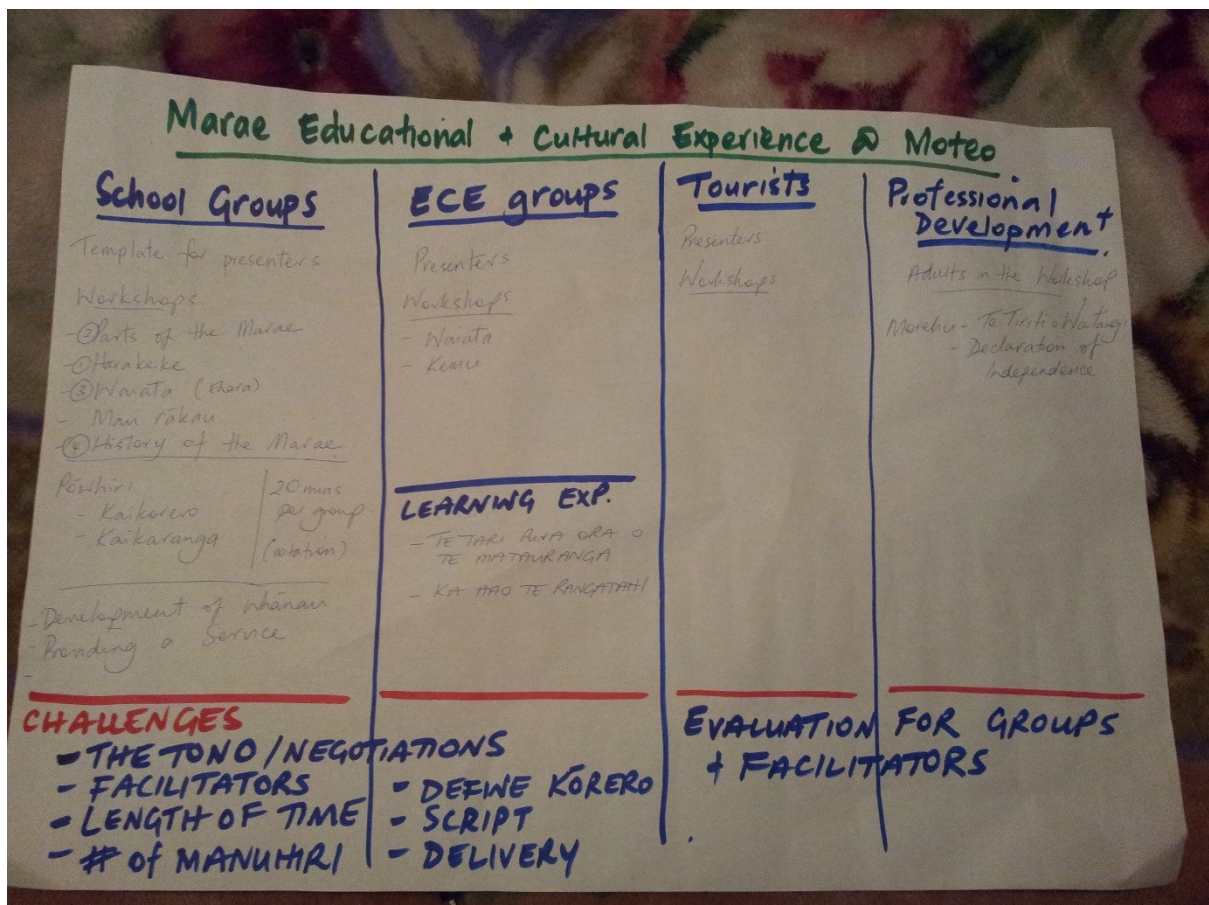 Marae Educational + Cultural Experience @ Moteo.
School Groups
Template for presenters
Workshops
- ② Parts of the Marae
- ① Harakeke
- ③ Waiata (
- Mau rākau
- ④ History of the Marae
Pōwhiri
- Kaikorero
- Kaikaranga
20 mins
per group
(rotation)
- Development of whānau
- Providing a Service
-
ECE groups
Presenters
Workshops
- Waiata
- Kemu
LEARNING EXP.
- TE TARI PUNA ORA O
TE MATAURANGA
- KA HAO TE RANGATAHI
Tourists
Presenters
Workshops
Professional
Development.
Adults in the Workshop
Morehu - Te Tiriti o Waitangi
- Declaration of
Independence
CHALLENGES
- THE TONO / NEGOTIATIONS
- FACILITATORS
- LENGTH OF TIME
- # of MANUHIRI
- DEFINE KŌRERO
- SCRIPT
- DELIVERY
EVALUATION FOR GROUPS
+ FACILITATORS